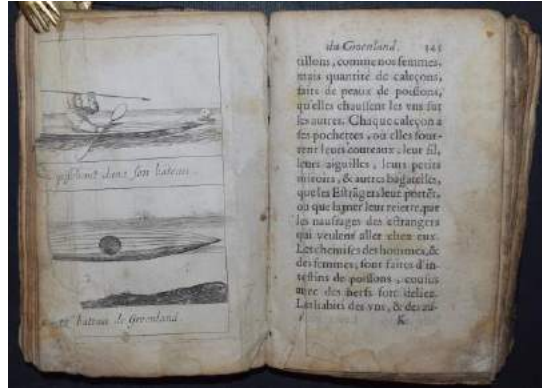 dans son bateau
bateau de Groenland
du Groenland. 145
tillons, comme nos femmes,
mais quantité de caleçons,
faits de peaux de poissons,
qu'elles chaussent les vns sur
les autres. Chaque caleçon a
ses pochettes, où elles four-
rent leurs couteaux, leur fil,
leurs aiguilles, leurs petits
miroirs, & autres bagatelles,
que les Estrãgers leur portẽt,
ou que la mer leur reiette, par
les naufrages des estrangers
qui veulent aller chez eux.
Les chemises des hommes, &
des femmes, sont faites d'in-
testins de poissons, cousus
auec des nerfs fort deliez.
Les habits des vns, & des au-
K